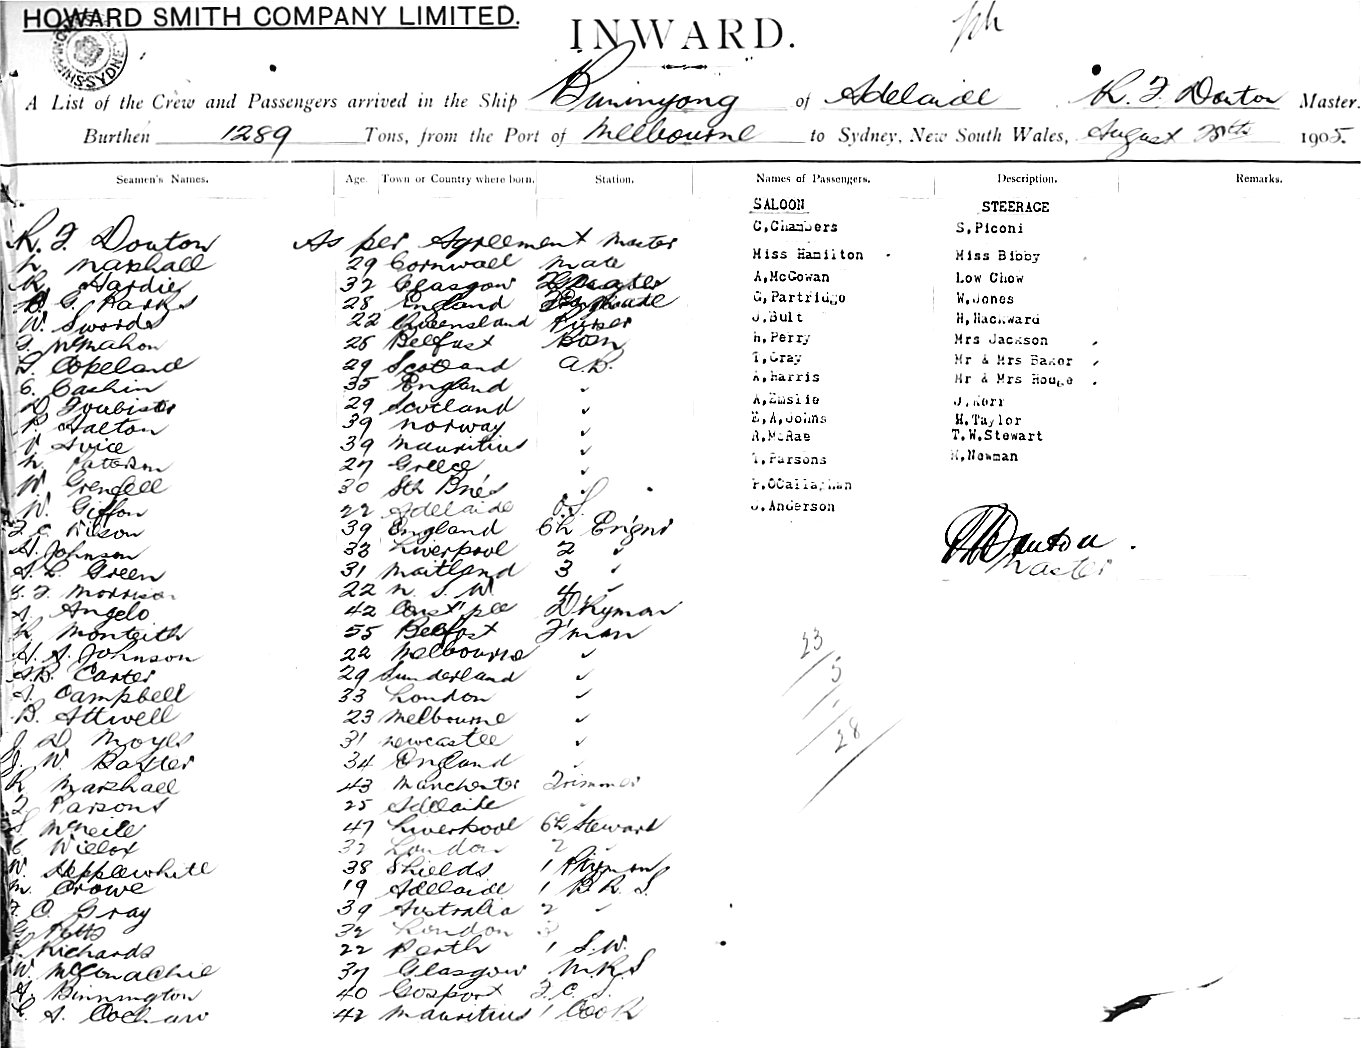 HOWARD SMITH COMPANY LIMITED.
INWARD.
A List of the Crew and Passengers arrived in the Ship Buninyong of Adelaide R. F. Douton Master.
Burthen 1289 Tons, from the Port of Melbourne to Sydney, New South Wales, August 28th 1905.
Seamen's Names. Age. Town or Country where born. Station. Names of Passengers. Description. Remarks.
SALOON STEERAGE
C,Chambers S,Piconi
Miss Hamilton Miss Bibby
A,McGowan Low Chow
C,Partridge W,Jones
J,Bult H,Hackward
H,Perry Mrs Jackson
T,Gray Mr & Mrs Baker
A,Harris Mr & Mrs Houge
A,Emslie J,Kerr
E,A,Johns H,Taylor
A,McRae T.W.Stewart
T,Parsons H,Newman
P,OCallaghan
J,Anderson
R. F. Douton As per Agreement Master
Marshall 29 Cornwall Mate
R. Hardie 32 Glasgow 2 Mate
G. Parks 28 England
W. Swords 22 Queensland Purser
McMahon 28 Belfast Bosn
Copeland 29 Scotland A.B.
C. Cashin 35 England "
D. Goubister 29 Scotland "
P. Halton 39 Norway "
39 Mauritius "
Paterson 27 Greece "
W. Grendell 30 Sth Bnes "
W. Giffon 22 Adelaide O.S.
39 England Ch Engnr
H. Johnson 33 Liverpool 2 "
S. L. Green 31 Maitland 3 "
F. Morrison 22 N. S. W. 4 "
A. Angelo 42 Const'ple Dkyman
R. Monteith 55 Belfast F'man
H. S. Johnson 22 Melbourne "
Carter 29 Sunderland "
A. Campbell 33 London "
B. Attwell 23 Melbourne "
J. D. Moyes 31 Newcastle "
J. W. Baxter 34 England "
R. Marshall 43 Manchester Trimmer
F. Parsons 25 Adelaide "
S. McNeill 47 Liverpool Ch Steward
C. Willox 32 London 2 "
W. Hepplewhite 38 Shields 1 Ptryman
M. Crowe 19 Adelaide 1 B. R. S.
F. O. Gray 39 Australia 2 "
G. Potts 32 London 3
Richards 22 Perth 1 S. W.
W. McConachie 37 Glasgow M.R.S.
A. Binnington 40 Gosport F. C. S.
A. Cochaw 42 Mauritius 1 Cook
Douton
Master
23
5
28